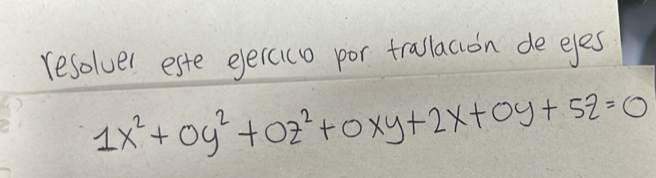 resolver este ejercicio por traslación de ejes
1x² + 0y² + 0z² + 0xy + 2x + 0y + 5z = 0